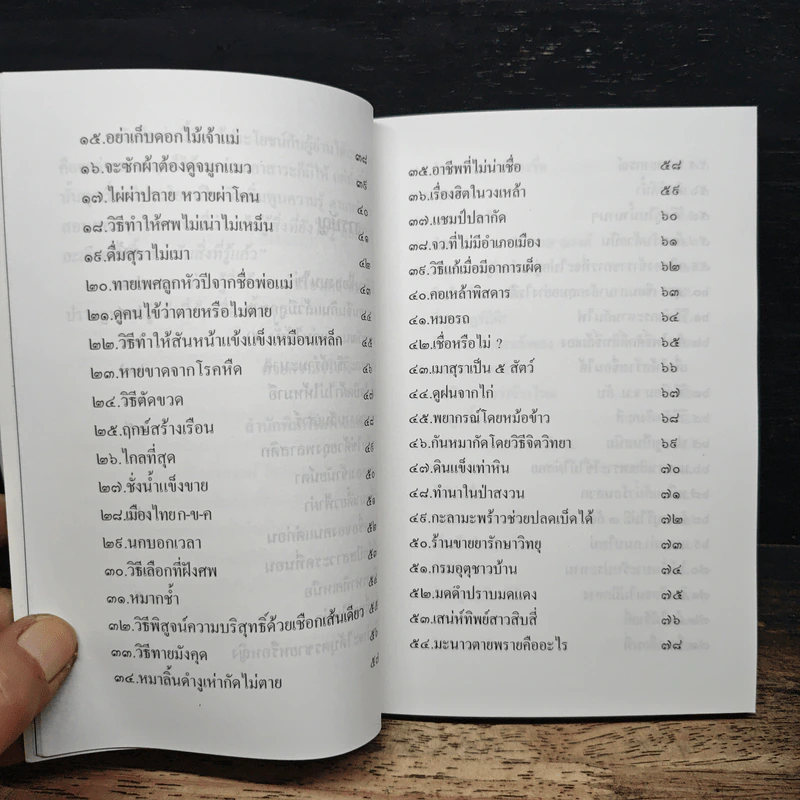 ๑๕.อย่าเก็บดอกไม้เจ้าแม่ ๓๘
๑๖.จะซักผ้าต้องดูจมูกแมว ๓๙
๑๗.ไผ่ผ่าปลาย หวายผ่าโคน ๔๐
๑๘.วิธีทำให้ศพไม่เน่าไม่เหม็น ๔๑
๑๙.ดื่มสุราไม่เมา ๔๒
๒๐.ทายเพศลูกหัวปีจากชื่อพ่อแม่ ๔๓
๒๑.ดูคนไข้ว่าตายหรือไม่ตาย ๔๔
๒๒.วิธีทำให้สันหน้าแข้งแข็งเหมือนเหล็ก ๔๕
๒๓.หายขาดจากโรคหืด ๔๖
๒๔.วิธีตัดขวด ๔๗
๒๕.ฤกษ์สร้างเรือน ๔๘
๒๖.ไกลที่สุด ๔๙
๒๗.ชั่งน้ำแข็งขาย ๕๐
๒๘.เมืองไทยก-ข-ค ๕๑
๒๙.นกบอกเวลา ๕๒
๓๐.วิธีเลือกที่ฝังศพ ๕๓
๓๑.หมากช้ำ ๕๔
๓๒.วิธีพิสูจน์ความบริสุทธิ์ด้วยเชือกเส้นเดียว ๕๕
๓๓.วิธีทายมังคุด ๕๖
๓๔.หมาลิ้นดำงูเห่ากัดไม่ตาย
๓๕.อาชีพที่ไม่น่าเชื่อ ๕๘
๓๖.เรื่องฮิตในวงเหล้า ๕๙
๓๗.แชมป์ปลากัด ๖๐
๓๘.จว.ที่ไม่มีอำเภอเมือง ๖๑
๓๙.วิธีแก้เมื่อมีอาการเผ็ด ๖๒
๔๐.คอเหล้าพิสดาร ๖๓
๔๑.หมอรถ ๖๔
๔๒.เชื่อหรือไม่ ? ๖๕
๔๓.เมาสุราเป็น ๕ สัตว์ ๖๖
๔๔.ดูฝนจากไก่ ๖๗
๔๕.พยากรณ์โดยหม้อข้าว ๖๘
๔๖.กันหมากัดโดยวิธีจิตวิทยา ๖๙
๔๗.ดินแข็งเท่าหิน ๗๐
๔๘.ทำนาในป่าสงวน ๗๑
๔๙.กะลามะพร้าวช่วยปลดเบ็ดได้ ๗๒
๕๐.ร้านขายยารักษาวิทยุ ๗๓
๕๑.กรมอุตุชาวบ้าน ๗๔
๕๒.มดดำปราบมดแดง ๗๕
๕๓.เสน่ห์ทิพย์สาวสิบสี่ ๗๖
๕๔.มะนาวตายพรายคืออะไร ๗๘